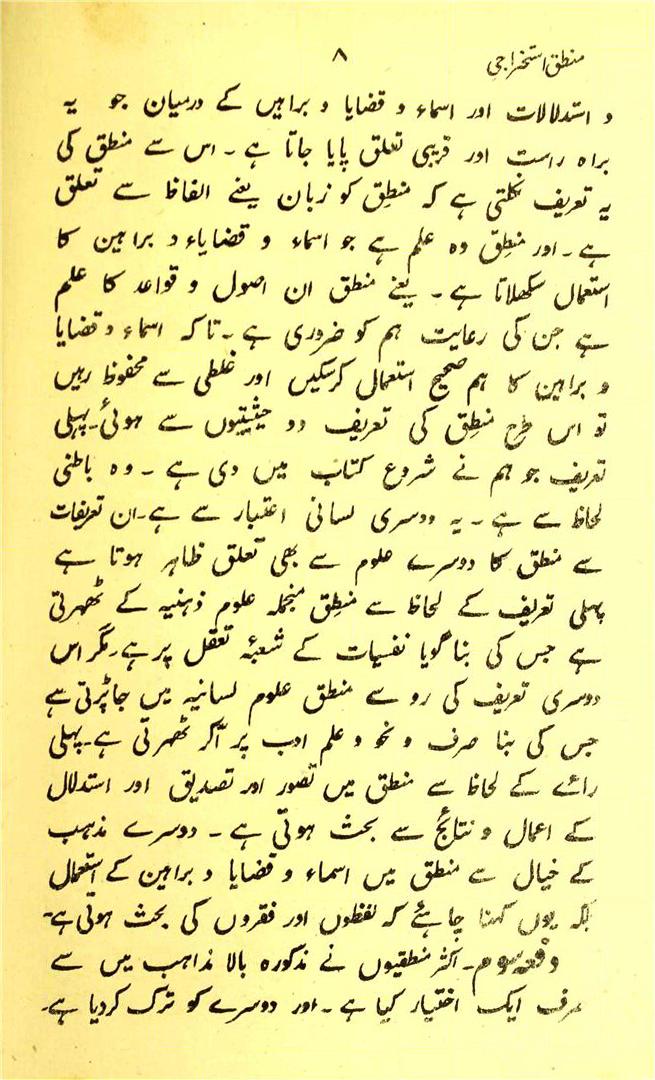 منطق استخراجی
۸
و استدلالات اور اسماء و قضایا و براہیں کے درمیان جو یہ
براہ راست اور قریبی تعلق پایا جاتا ہے ۔ اس سے منطق کی
یہ تعریف نکلتی ہے کہ منطق کو زبان یعنے الفاظ سے تعلق
ہے ۔ اور منطق وہ علم ہے جو اسماء و قضایاء و براہین کا
استعمال سکھلاتا ہے ۔ یعنے منطق ان اصول و قواعد کا علم
ہے جن کی رعایت ہم کو ضروری ہے ۔ تاکہ اسماء و قضایا
و براہین کا ہم صحیح استعمال کرسکیں اور غلطی سے محفوظ رہیں
تو اس طرح منطق کی تعریف دو حیثیتوں سے ہوئی۔ پہلی
تعریف جو ہم نے شروع کتاب میں دی ہے ۔ وہ باطنی
لحاظ سے ہے ۔ یہ دوسری لسانی اعتبار سے ہے۔ ان تعریفات
سے منطق کا دوسرے علوم سے بھی تعلق ظاہر ہوتا ہے
پہلی تعریف کے لحاظ سے منطق منجملہ علوم ذہنیہ کے ٹھہرتی
ہے جس کی بنا گویا نفسیات کے شعبۂ تعقل پر ہے۔ مگر اس
دوسری تعریف کی رو سے منطق علوم لسانیہ میں جاپڑتی ہے
جس کی بنا صرف و نحو و علم ادب پر آکر ٹھہرتی ہے۔ پہلی
رائے کے لحاظ سے منطق میں تصور اور تصدیق اور استدلال
کے اعمال و نتائج سے بحث ہوتی ہے ۔ دوسرے مذہب
کے خیال سے منطق میں اسماء و قضایا و براہین کے استعمال
بلکہ یوں کہنا چاہئے کہ لفظوں اور فقروں کی بحث ہوتی ہے۔
دفعہ سوم ۔ اکثر منطقیوں نے مذکورہ بالا مذاہب میں سے
صرف ایک اختیار کیا ہے ۔ اور دوسرے کو ترک کردیا ہے۔